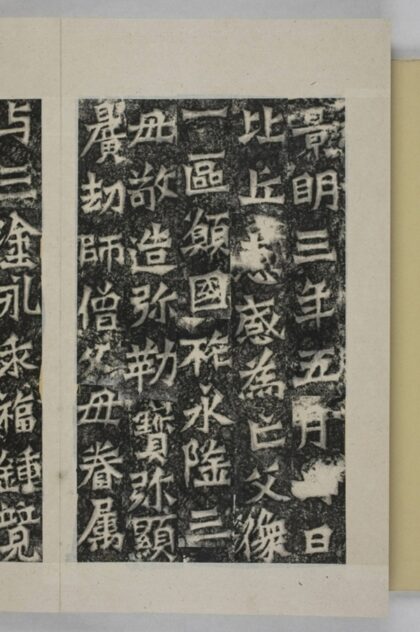 景明三年五月日
比丘惠感為亡父像
一區願國祚永隆三
毋敬造弥勒寶弥顯
曠劫師僧父毋眷属
与三塗永乖福鍾竟